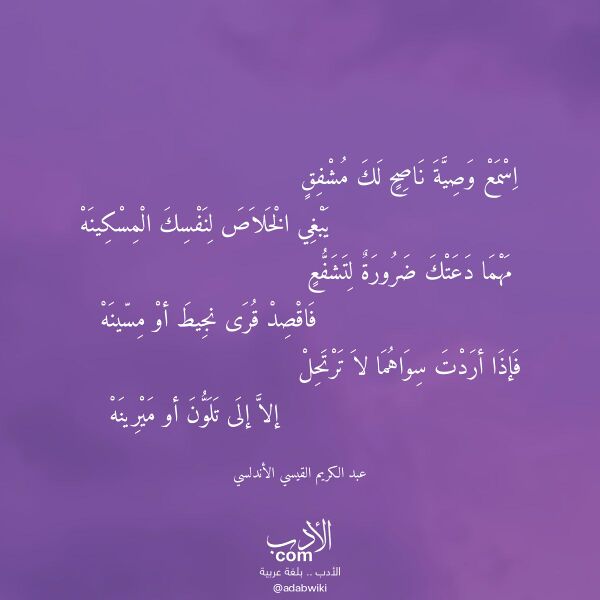 اِسْمَعْ وَصِيَّةَ نَاصِحٍ لَكَ مُشْفِقٍ
يَبْغِي الْخَلاَصَ لِنَفْسِكَ الْمِسْكِينَهْ
مَهْمَا دَعَتْكَ ضَرُورَةٌ لِتَشَفُّعٍ
فَاقْصِدْ قُرَى نجِيطَ أوْ مِسّينَهْ
فَإذَا أرَدْتَ سِوَاهُمَا لاَ تَرْتَحِلْ
إلاَّ إلَى تَلَوُّنَ أو مَيْرِينَهْ
عبد الكريم القيسي الأندلسي
الأدب
com
الأدب .. بلغة عربية
@adabwiki